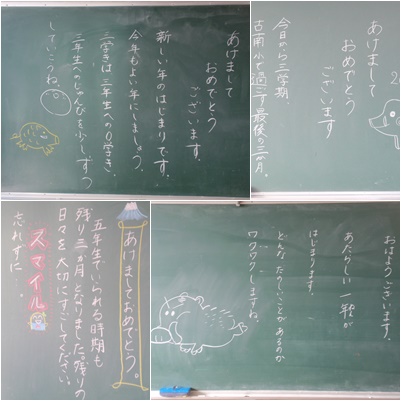 あけまして
おめでとう
ございます。
新しい年のはじまりです。
今年もよい年にしましょう。
三学きは三年生への0学き。
三年生へのじゅんびを少しずつ
していこうね。
あけまして
おめでとう
ございます
今日から三学期
古南小で過ごす最後の三か月。
あけましておめでとう。
五年生でいられる時期も
残り三か月となりました。残りの
日々を大切にすごしてください。
スマイル
忘れずに…。
おはようございます。
あたらしい一年が
はじまります。
どんなたのしいことがあるのか
ワクワクしますね。